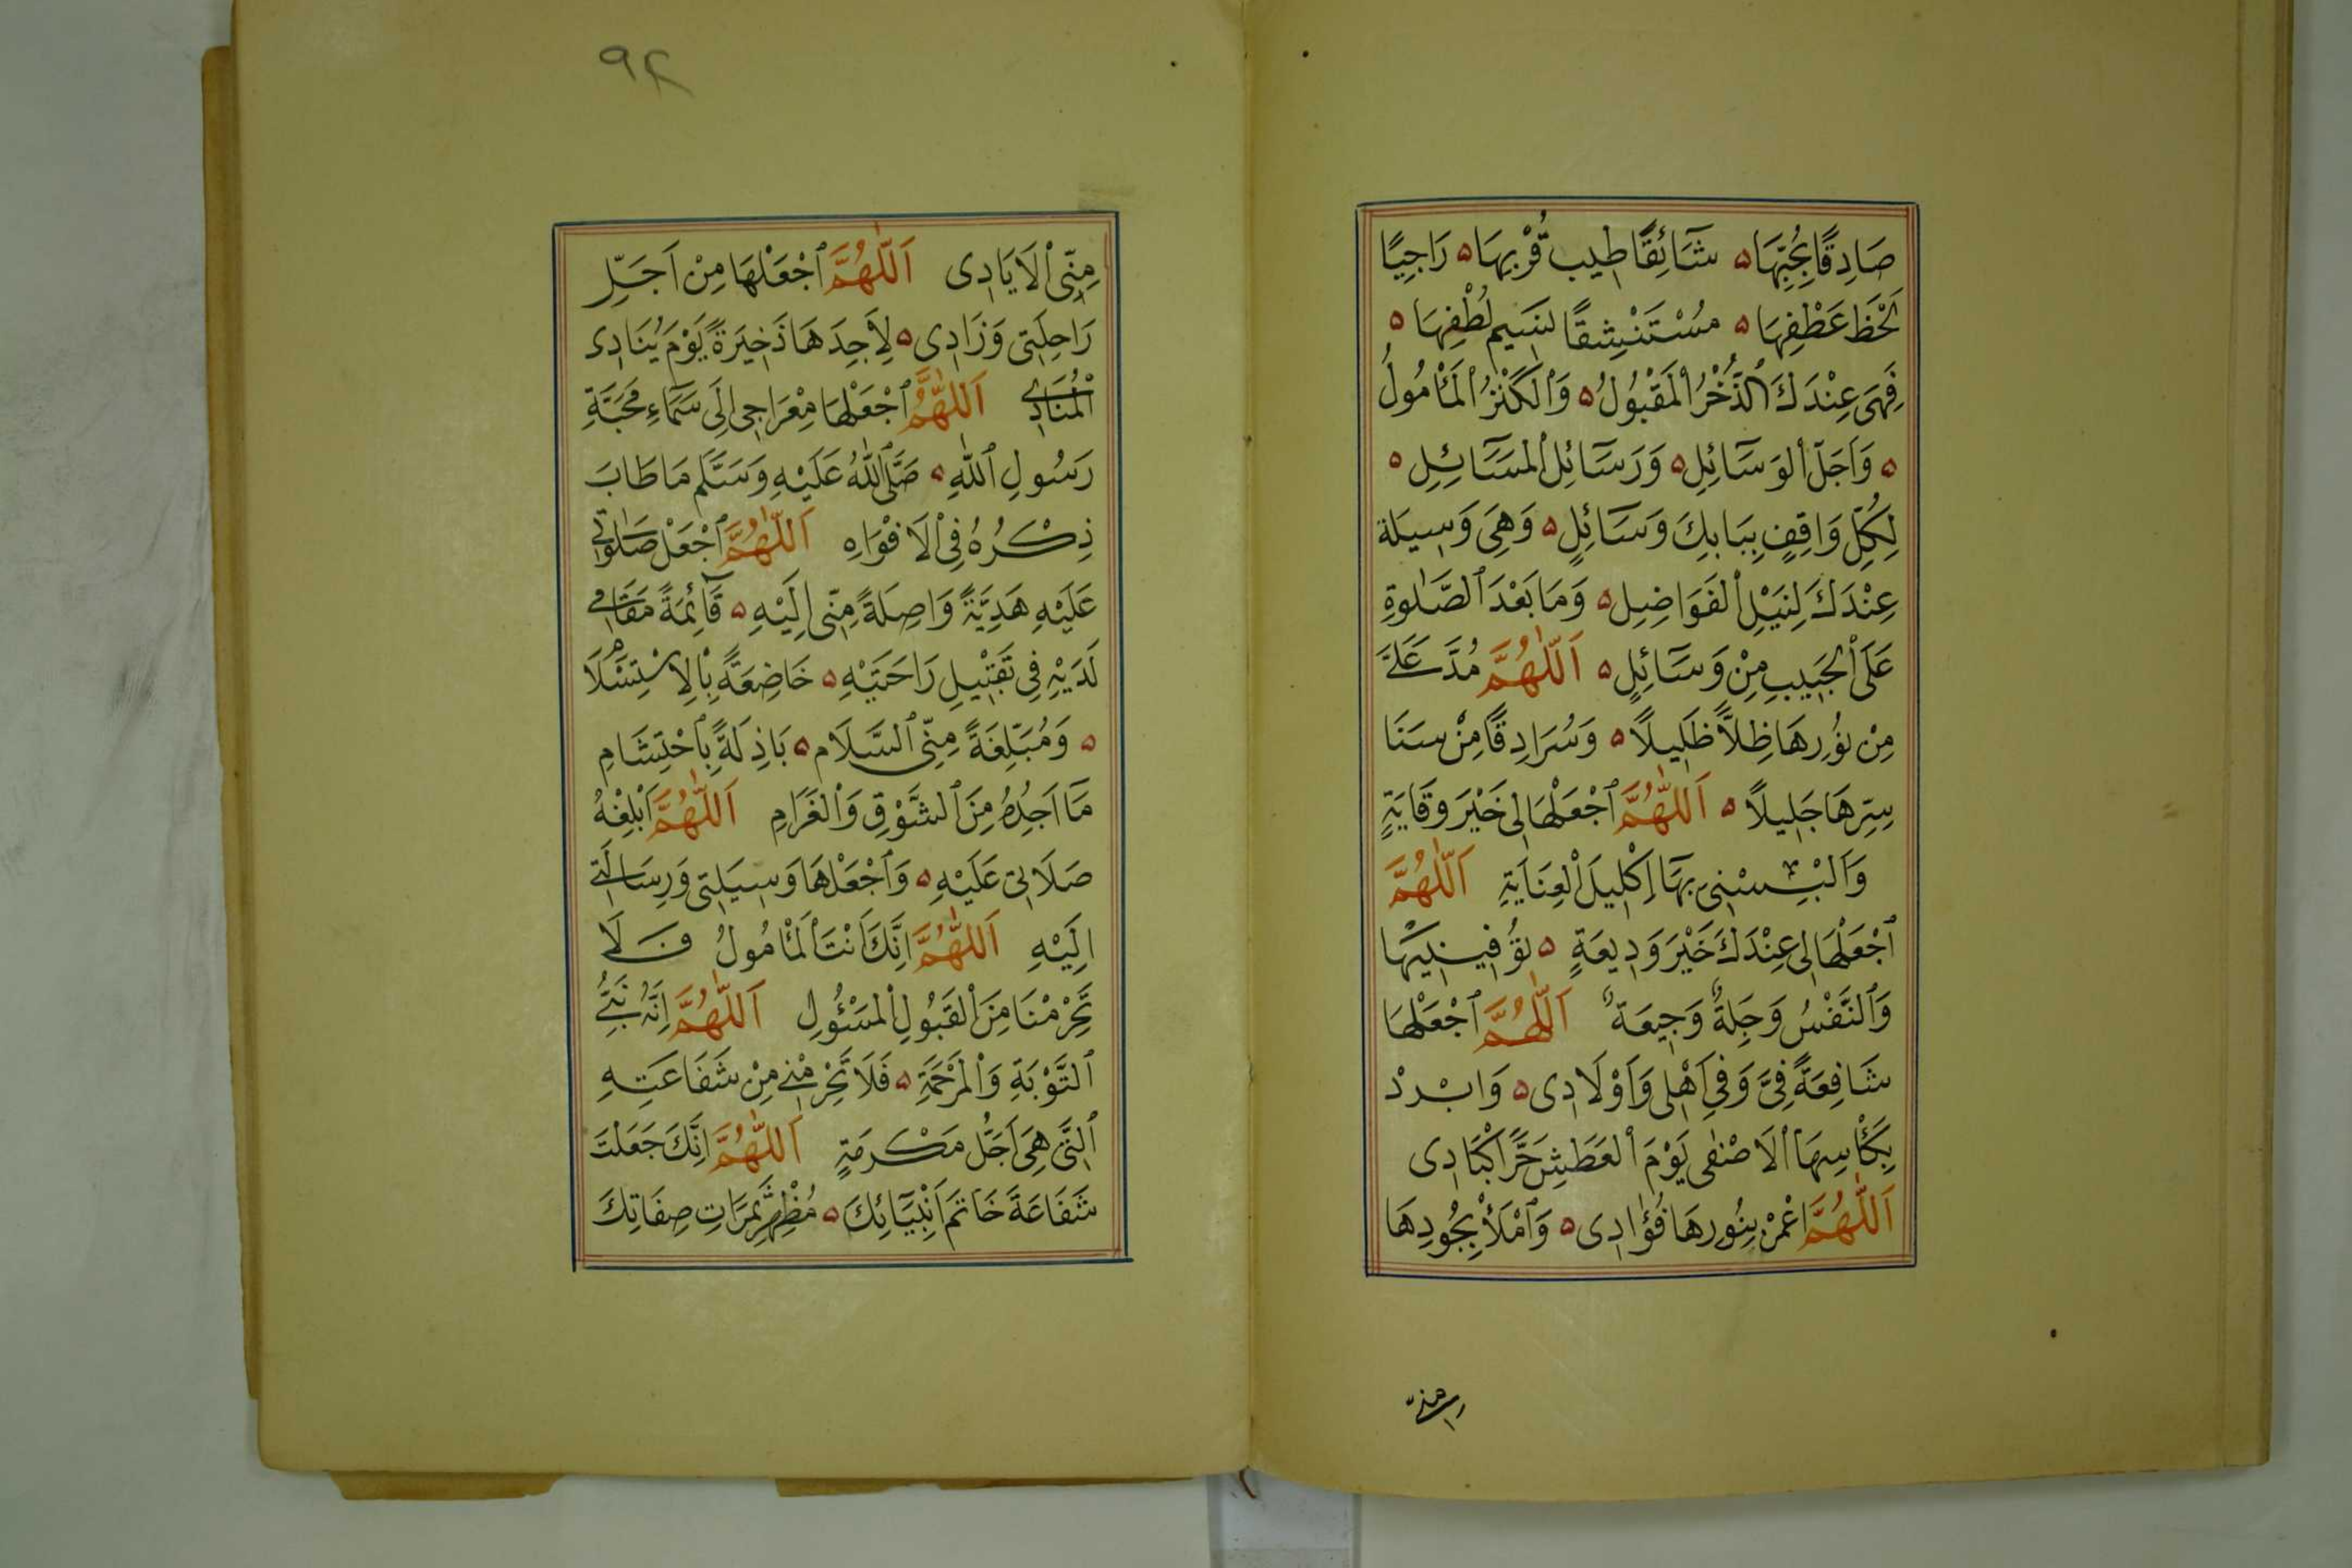 صَادِقًا بِحُبِّهَا ۵ شَآئِقًا طِيبَ قُرْبِهَا ۵ رَاجِيًا
لَحْظَ عَطْفِهَا ۵ مُسْتَنْشِقًا لِنَسِيمِ لُطْفِهَا ۵
فَهِىَ عِنْدَكَ ٱلذُّخْرُ ٱلْمَقْبُولُ ۵ وَٱلْكَنْزُ ٱلْمَأْمُولُ
۵ وَاَجَلّ ٱلوَسَآئِلِ ۵ وَرَسَآئِل ٱلْمسَآئِلِ ۵
لِكُلِّ وَاقِفٍ بِبَابِكَ وَسَآئِلٍ ۵ وَهِىَ وَسِيلَة
عِنْدَكَ لِنَيْلِ ٱلْفَوَاضِلِ ۵ وَمَا بَعْدَ ٱلصَّلٰوةِ
عَلَى ٱلْحَبِيبِ مِنْ وَسَآئِلٍ ۵ اَللّٰهُمَّ مُدَّ عَلَىَّ
مِنْ نُورِهَا ظِلاًّ ظَلِيلاً ۵ وَسُرَادِقًا مِنْ سَنَا
سِرِّهَا جَلِيلاً ۵ اَللّٰهُمَّ ٱجْعَلْهَا لِى خَيْرَ وِقَايَةٍ
وَاَلْبِسْنِى بِهَا إِكْلِيلَ ٱلْعِنَايَةِ اَللّٰهُمَّ
ٱجْعَلْهَا لِى عِنْدَكَ خَيْرَ وَدِيعَةٍ ۵ تُوَافِينِيهَا
وَٱلنَّفْسُ وَجِلَةٌ وَجِيعَةٌ اَللّٰهُمَّ ٱجْعَلْهَا
شَافِعَةً فِىَّ وَفِى اَهْلِى وَاَوْلَادِى ۵ وَابْرِدْ
بِكَأْسِهَا ٱلَاصْفٰى يَوْمَ ٱلْعَطَشِ حَرَّ اَكْبَادِى
اَللّٰهُمَّ اغْمُرْ بِنُورِهَا فُؤَادِى ۵ وَٱمْلَأْ بِجُودِهَا
منّى
٩٢
مِنِّى ٱلْاَيَادِى اَللّٰهُمَّ ٱجْعَلْهَا مِنْ اَجَلِّ
رَاحِلَتِى وَزَادِى ۵ لِاَجِدَهَا ذَخِيرَةً يَوْمَ يُنَادِى
ٱلْمُنَادِى اَللّٰهُمَّ ٱجْعَلْهَا مِعْرَاجِى اِلَى سَمَآءِ مَحَبَّةِ
رَسُولِ ٱللّٰهِ ۵ صَلَّى ٱللّٰهُ عَلَيْهِ وَسَلَّم مَا طَابَ
ذِكْرُهُ فِى ٱلْاَفْوَاهِ اَللّٰهُمَّ ٱجْعَلْ صَلَوٰتِى
عَلَيْهِ هَدِيَّةً وَاصِلَةً مِنِّى اِلَيْهِ ۵ قَآئِمَةً مَقَامِى
لَدَيْهِ فِى تَقْبِيلِ رَاحَتَيْهِ ۵ خَاضِعَةً بِٱلْاِسْتِسْلَامِ
۵ وَمُبَلِّغَةً مِنِّى ٱلسَّلَام ۵ بَاذِلَةً بِٱحْتِشَامِ
مَآ اَجِدُهُ مِنَ ٱلشَّوْقِ وَٱلْغَرَامِ اَللّٰهُمَّ اَبْلِغْهُ
صَلَاتِى عَلَيْهِ ۵ وَٱجْعَلْهَا وَسِيلَتِى وَرِسَالَتِى
اِلَيْهِ اَللّٰهُمَّ اِنَّكَ اَنْتَ ٱلْمَأْمُولُ فَلَا
تَحْرِمْنَا مِنَ ٱلْقَبُولِ ٱلْمَسْئُولِ اَللّٰهُمَّ اِنَّهُ نَبِىُّ
ٱلتَّوْبَةِ وَٱلْمَرْحَمَةِ ۵ فَلَا تَحْرِمْنِى مِنْ شَفَاعَتِهِ
ٱلَّتِى هِىَ اَجَلُّ مَكْرمَةٍ اَللّٰهُمَّ اِنَّكَ جَعَلْتَ
شَفَاعَةَ خَاتَمِ اَنْبِيَآئِكَ ۵ مُظْهِرَ ثَمَرَاتِ صِفَاتِكَ